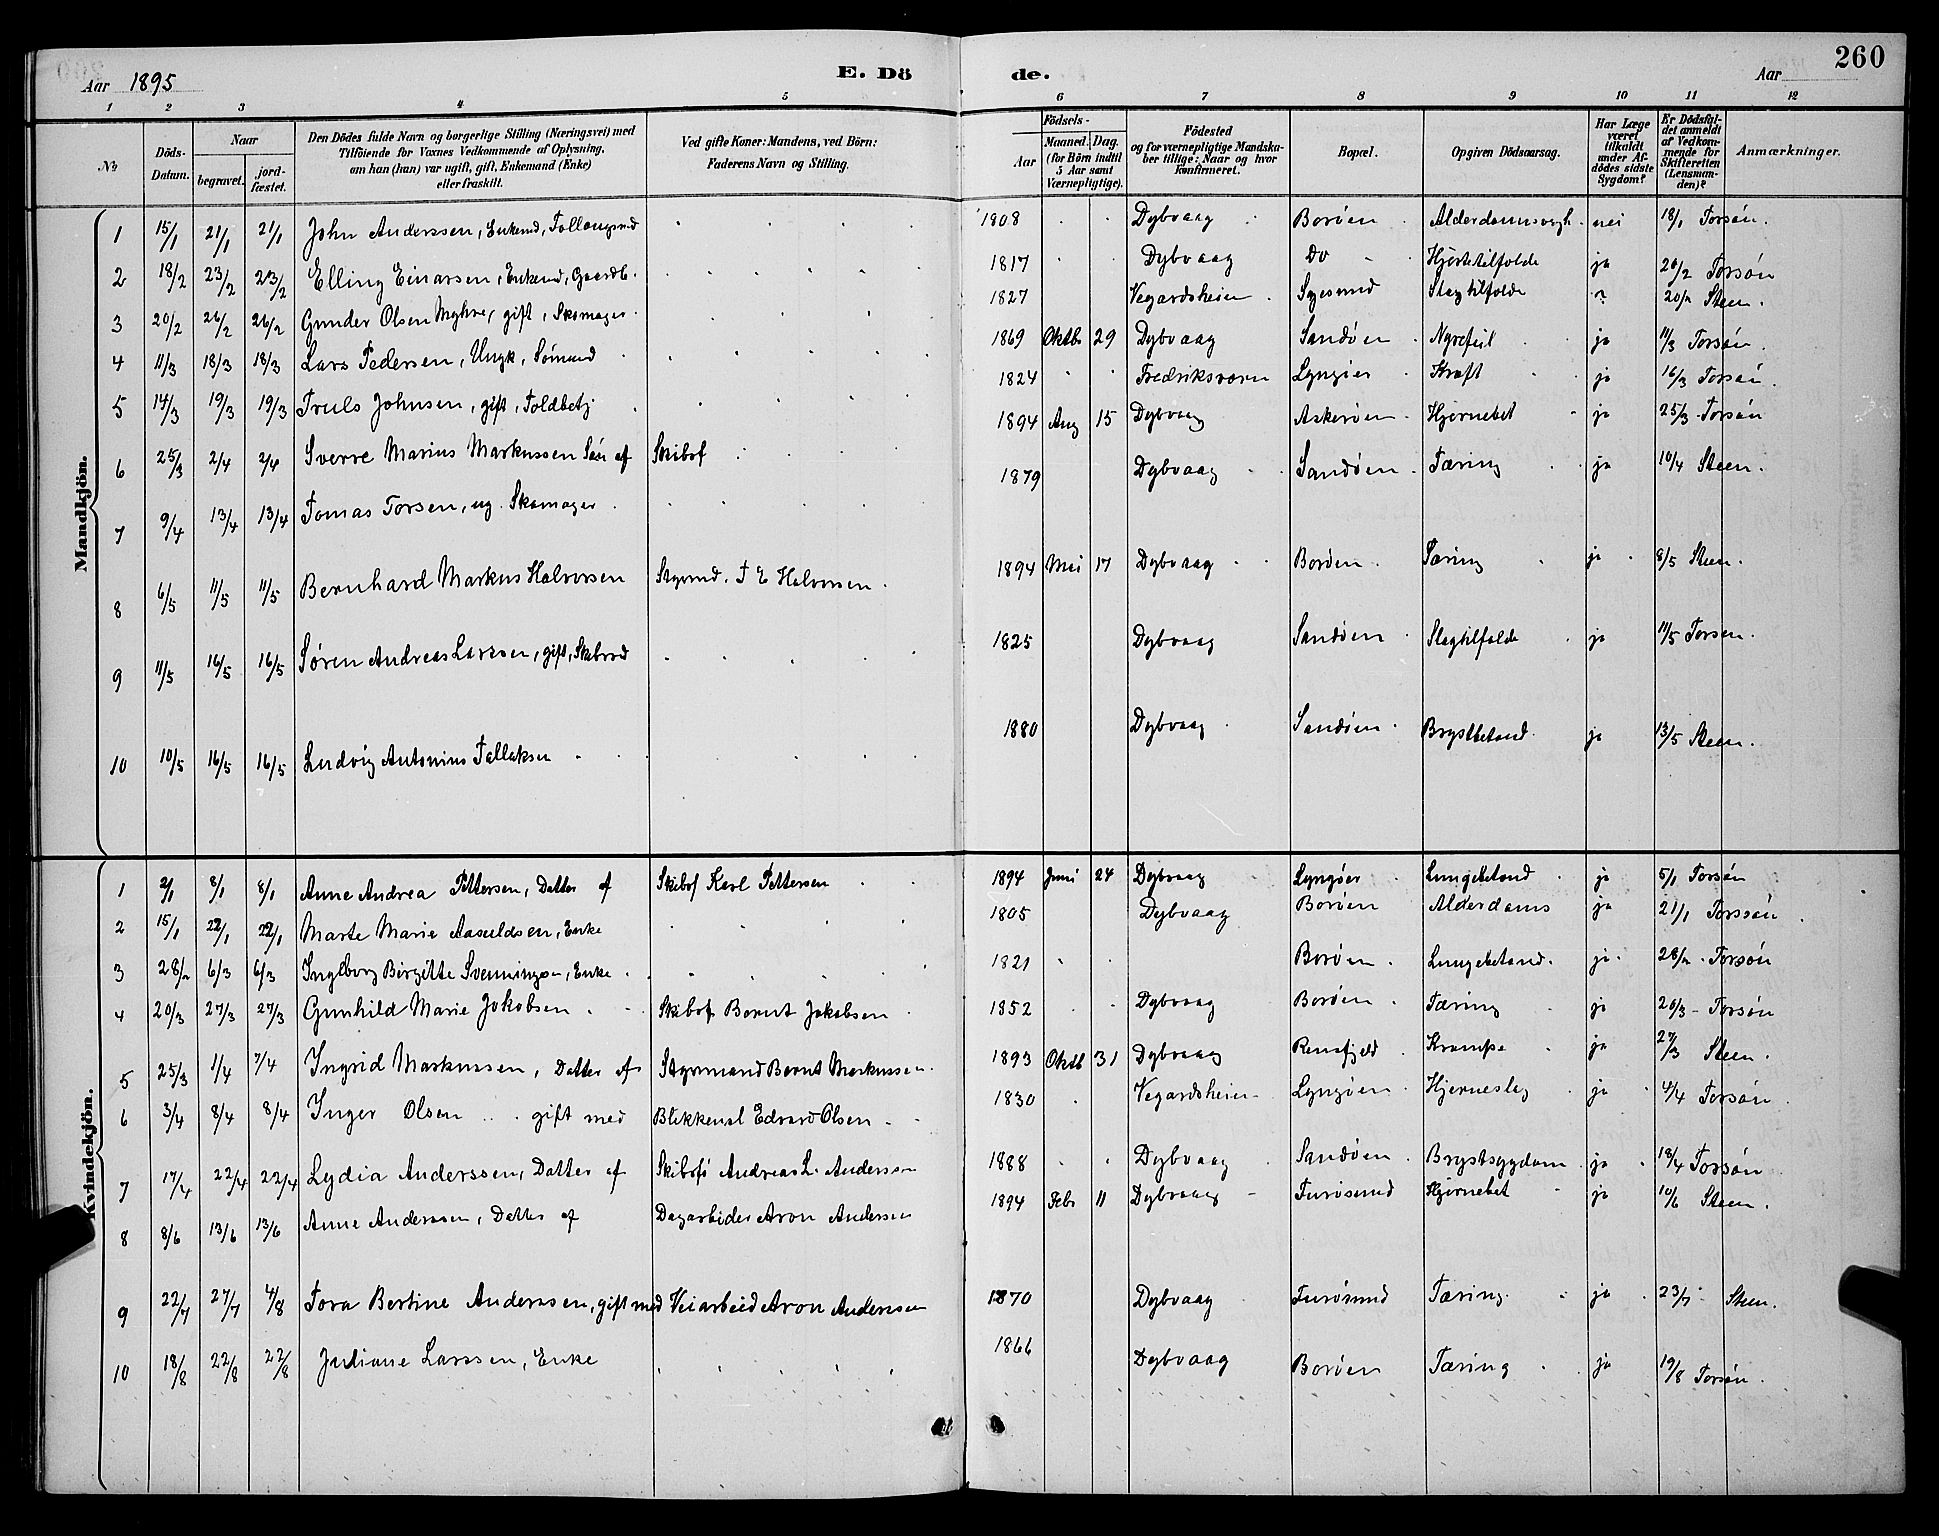 260
Aar 1895
E. Dö
de.
Aar
1 2 3 4 5 6 7 8 9 10 11 12
№
Döds-Datum.
Naar
begravet.
jord-fæstet.
Den Dödes fulde Navn og borgerlige Stilling (Næringsvei) med
Tilföiende for Voxnes Vedkommende af Oplysning,
om han (hun) var ugift, gift, Enkemand (Enke)
eller fraskilt.
Ved gifte Koner: Mandens, ved Börn:
Faderens Navn og Stilling.
Födsels-
Aar
Maaned.
Dag.
(for Börn indtil
5 Aar samt
Værnepligtige).
Födested
og for værnepligtige Mandska-
ber tillige: Naar og hvor
konfirmeret.
Bopæl.
Opgiven Dödsaarsag.
Har Læge
været
tilkaldt
under Af-
dödes sidste
Sygdom?
Er Dödsfal-
det anmeldt
af Vedkom-
mende for
Skifteretten
(Lensman-
den)?
Anmærkninger.
Mandkjön.
1 15/1 21/1 21/1 John Anderssen, Enkemd, 1808 Dybvaag Borøen nei 18/1 Torsøn.
2 18/2 23/2 23/2 Elling Einarsen, Enkemd, Gaardb. 1817 Dybvaag Do Hjertetilfælde ja 20/2 Torsøn
3 20/2 26/2 26/2 Gunder Olsen Myhre, gift, Skomager. 1827 Vegardsheien Slagtilfælde 20/2 Steen.
4 11/3 18/3 18/3 Lars Pedersen, Ungk, Sømand 1869 Oktb 29 Dybvaag Sandøen Nyrefeil ja 11/3 Torsøn.
5 14/3 19/3 19/3 Truls Johnsen, gift, Toldbetj. 1824 Fredriksværn Lyngøer Kræft ja 16/3 Torsøn.
6 25/3 2/4 2/4 Sverre Marius Markussen Søn af Skibsf 1894 Aug 15 Dybvaag Askerøen Hjernebet ja 25/3 Torsøn
7 9/4 13/4 13/4 Tomas Torsen, ug. Skomager. 1879 Dybvaag Sandøen Tæring ja 10/4 Steen.
8 6/5 11/5 11/5 Bernhard Markus Halvorsen Styrmd. T E Halvorsen. 1894 Mai 17 Dybvaag Borøen Tæring ja 8/5 Steen.
9 11/5 16/5 16/5 Søren Andreas Larssen, gift, 1825 Dybvaag Sandøen Slagtilfælde ja 11/5 Torsen.
10 10/5 16/5 16/5 Ludvig Antonius Tallaksen 1880 Dybvaag Sandøen Brystbetænd. ja 13/5 Steen.
Kvindekjön.
1 2/1 8/1 8/1 Anne Andrea Pettersen, Datter af Skibsf Karl Pettersen 1894 Juni 24 Dybvaag Lyngøer Lungebetænd ja 5/1 Torsøn
2 15/1 22/1 22/1 Marte Marie Aasuldsen, Enke 1805 Dybvaag Borøen Alderdoms ja 21/1 Torssøn.
3 28/2 6/3 6/3 Ingeborg Birgitte Svenningsen, Enke. 1821 Borøen Lungebetænd. ja 28/2 Torsøn
4 20/3 27/3 27/3 Gunhild Marie Jakobsen Skibsf Bernt Jakobsen 1852 Dybvaag Borøen Tæring ja 20/3 Torsøn
5 25/3 1/4 7/4 Ingrid Markussen, Datter af Styrmand Bernt Markussen. 1893 Oktb 31 Dybvaag Krampe ja 27/3 Steen.
6 3/4 8/4 8/4 Inger Olsen gift med Blikkensl Edvard Olsen 1830 Vegardsheien Lyngøen Hjerneslag ja 4/4 Torsøn
7 17/4 22/4 22/4 Lydia Anderssen, Datter af Skibsf Andreas L. Anderssen 1888 Dybvaag Sandøen Brystsygdom ja 18/4 Torsøn
8 8/6 13/6 13/6 Anne Anderssen, Datter af Dagarbeider Aron Andersen 1894 Febr 11 Dybvaag Furøsund Hjernebet ja 10/6 Steen.
9 22/7 27/7 4/8 Tora Bertine Anderssen, gift med Veiarbeid Aron Andersen 1870 Dybvaag Furøsund Tæring. ja 23/7 Steen.
10 18/8 22/8 22/8 Juliane Larssen, Enke 1866 Dybvaag Borøen Tæring ja 19/8 Torsøn.